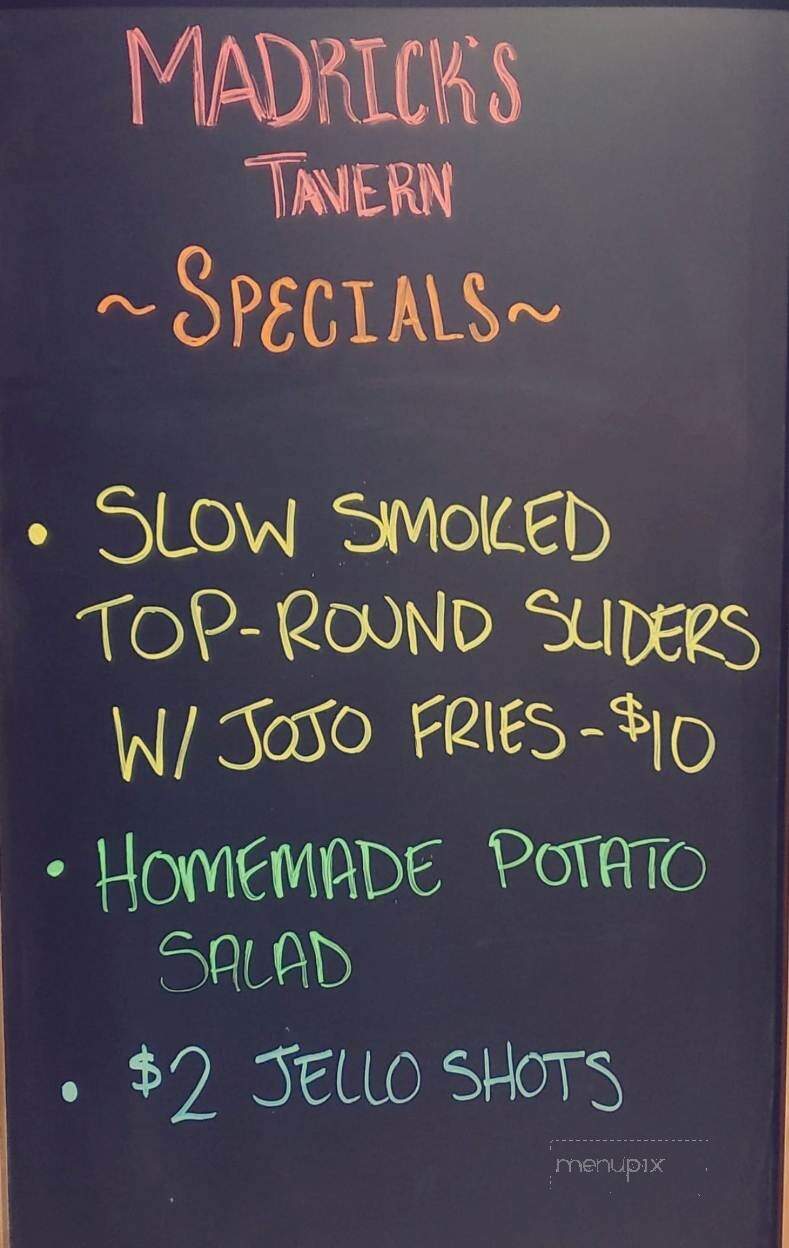 MADRICK'S
TAVERN
~SPECIALS~
• SLOW SMOKED
TOP-ROUND SLIDERS
W/ JOJO FRIES-$10
• HOMEMADE POTATO
SALAD
• $2 JELLO SHOTS
menupix